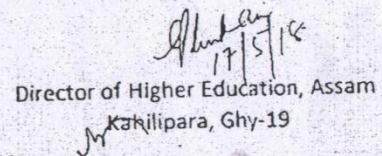 17/5/18
Director of Higher Education, Assam
Kahilipara, Ghy-19